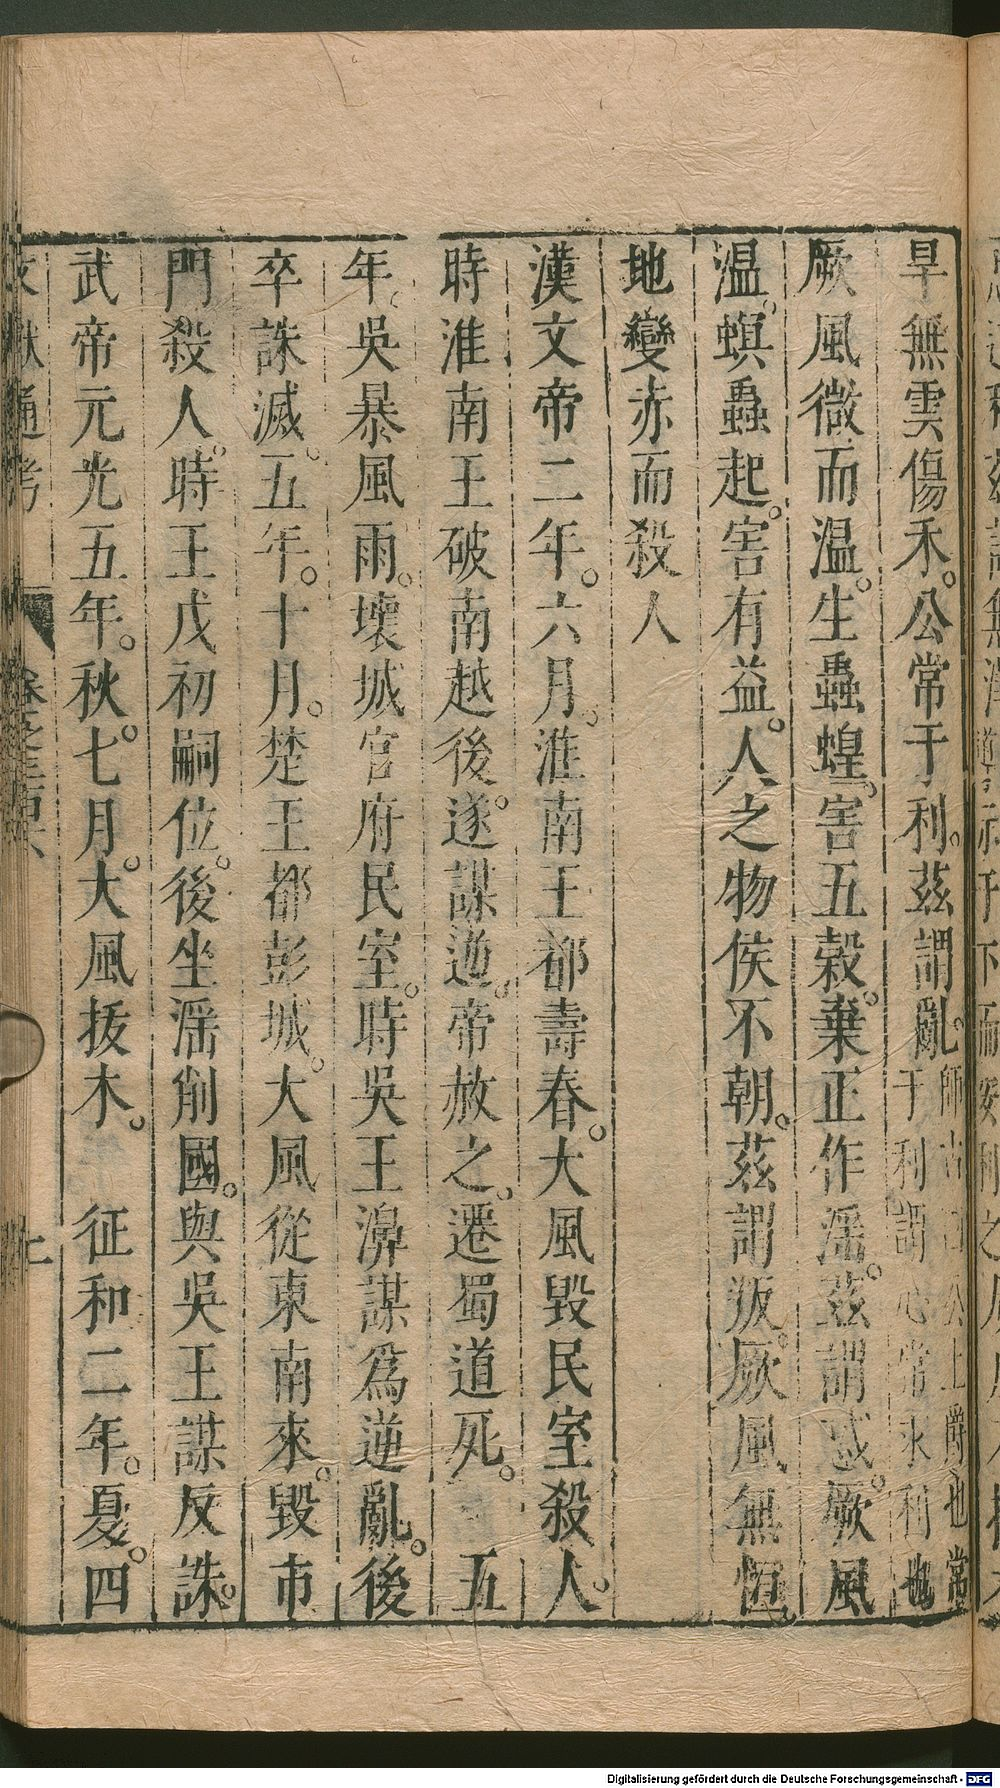 旱無雲傷禾。公常于利。茲謂亂。師古曰公上爵也常于利謂心常求利也
厥風微而温。生蟲蝗。害五榖。棄正作淫。茲謂惑。厥風
温。螟蟲起。害有益。人之物侯不朝。茲謂叛。厥風無恒。
地變赤而殺人
漢文帝二年。六月。淮南王都壽春。大風毀民室殺人。
時淮南王破南越後。遂謀逆。帝赦之。遷蜀道死。 五
年。吳暴風雨。壞城官府民室。時吳王濞謀爲逆亂。後
卒誅滅。五年。十月。楚王都彭城。大風從東南來。毀市
門殺人。時王戊初嗣位。後坐淫削國。與吳王謀反誅。
武帝元光五年。秋。七月。大風拔木。 征和二年。夏。四
文獻通考
Digitalisierung gefördert durch die Deutsche Forschungsgemeinschaft - DFG